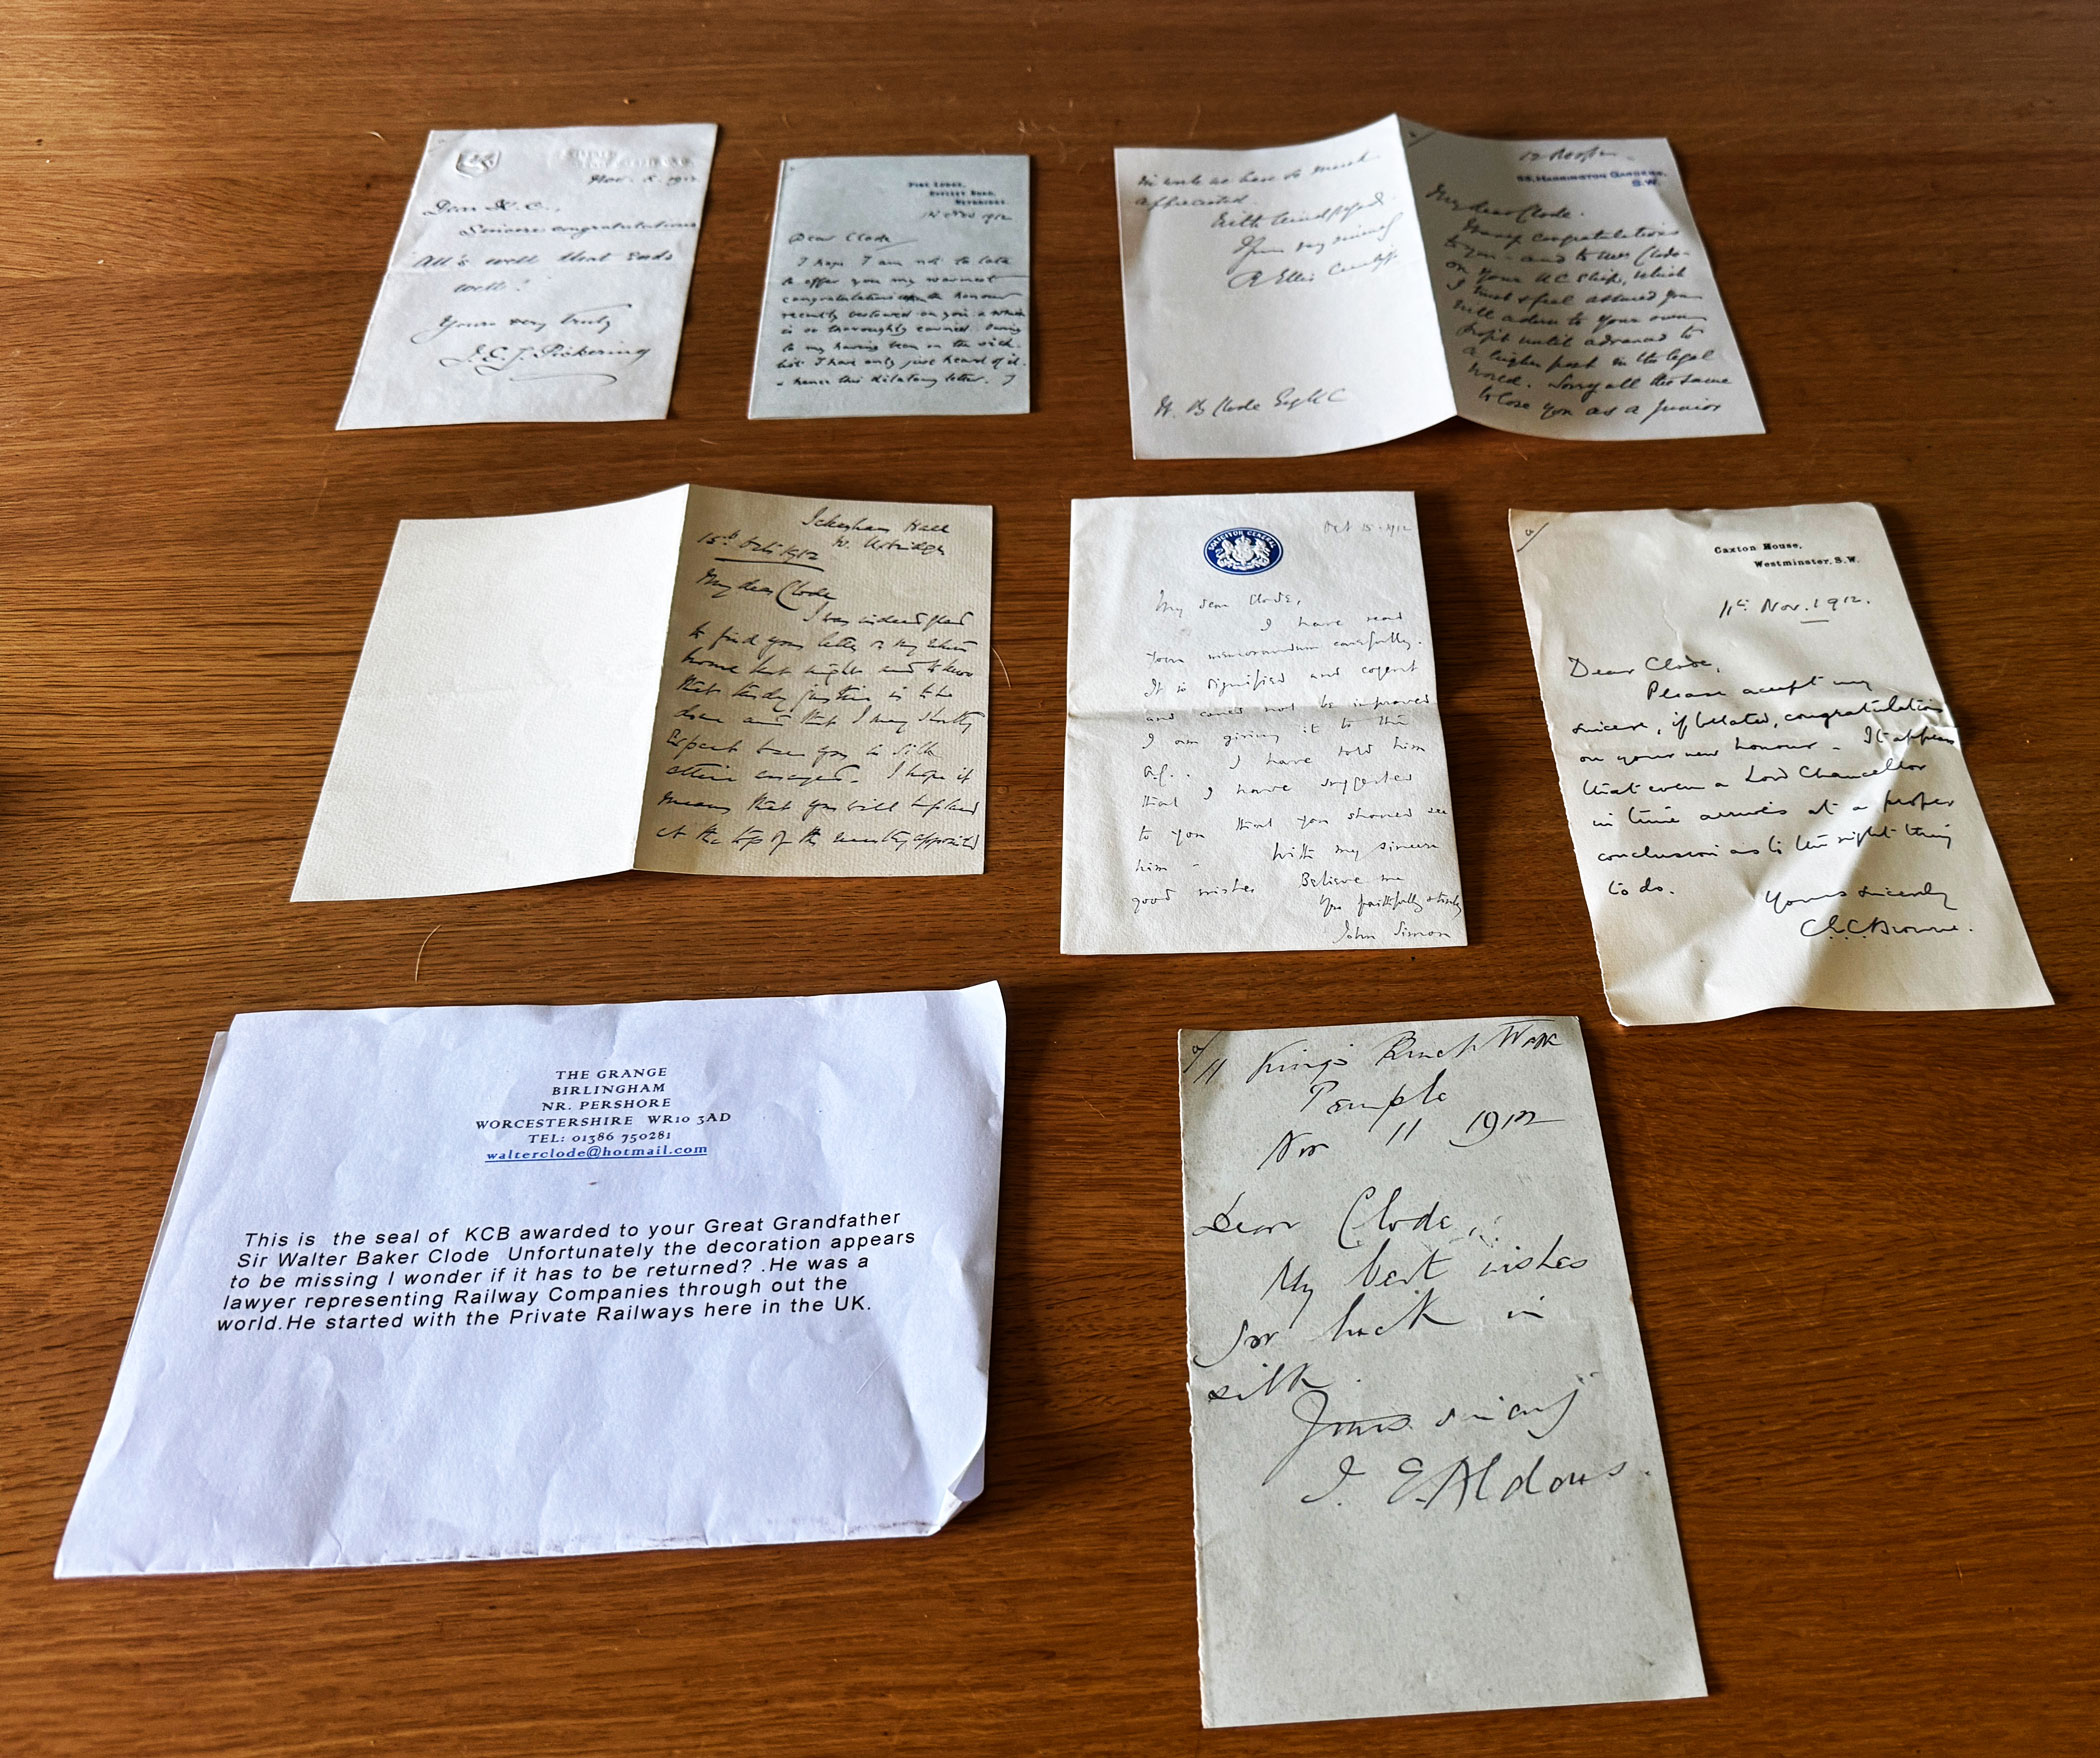 Nov. 8. 1912
Dear K.C.,
Sincere congratulations
"All's well that Ends
well"!
Yours very truly
J.E.J. Pickering
14 Nov 1912
Dear Clode
I hope I am not to late
to offer you my warmest
congratulations the honour
recently bestowed on you & which
is so thoroughly earned. Owing
to my having been on the sick
list I had only just heard of it
& hence this dilatory letter. I
we have so much
appreciated.
With kind regards
Yours very sincerely
R Ellis Cunliffe
W. B Clode Esq K C
55, Harrington Gardens,
S.W.
My dear Clode.
Many congratulations
to you - and to Mrs Clode -
on your K C ship, which
I trust & feel assured you
will adorn to your own
profit until advanced to
a higher post in the legal
world. Sorry all the same
to lose you as a junior
Ickenham Hall
W. Uxbridge
15th Oct 1912
My dear Clode
I was indeed glad
to find your letter on my return
home last night and to know
that tardy justice is to be
done and that I may shortly
expect to see you in silk
attire arrayed. I hope it
means that you will be placed
at the top of the newly appointed
SOLICITOR GENERAL
Oct 15 - 1912
My dear Clode,
I have read
your memorandum carefully.
It is dignified and cogent
and could not be improved
I am giving it to the
A.G.. I have told him
that I have suggested
to you that you should see
him - With my sincere
good wishes Believe me
Yrs faithfully & truly
John Simon
Caxton House,
Westminster, S.W.
11th Nov. 1912.
Dear Clode,
Please accept my
sincere, if belated, congratulations
on your new honour - It appears
that even a Lord Chancellor
in time arrives at a proper
conclusion as to the right thing
to do.
Yours sincerely
C.C. Browne.
THE GRANGE
BIRLINGHAM
NR. PERSHORE
WORCESTERSHIRE WR10 3AD
TEL: 01386 750281
walterclode@hotmail.com
This is the seal of KCB awarded to your Great Grandfather
Sir Walter Baker Clode Unfortunately the decoration appears
to be missing I wonder if it has to be returned? .He was a
lawyer representing Railway Companies through out the
world.He started with the Private Railways here in the UK.
11 King's Bench Walk
Temple
Nov 11 1912
Dear Clode,
My best wishes
for luck in
silk.
Yours sincerely
J. E. Aldous.